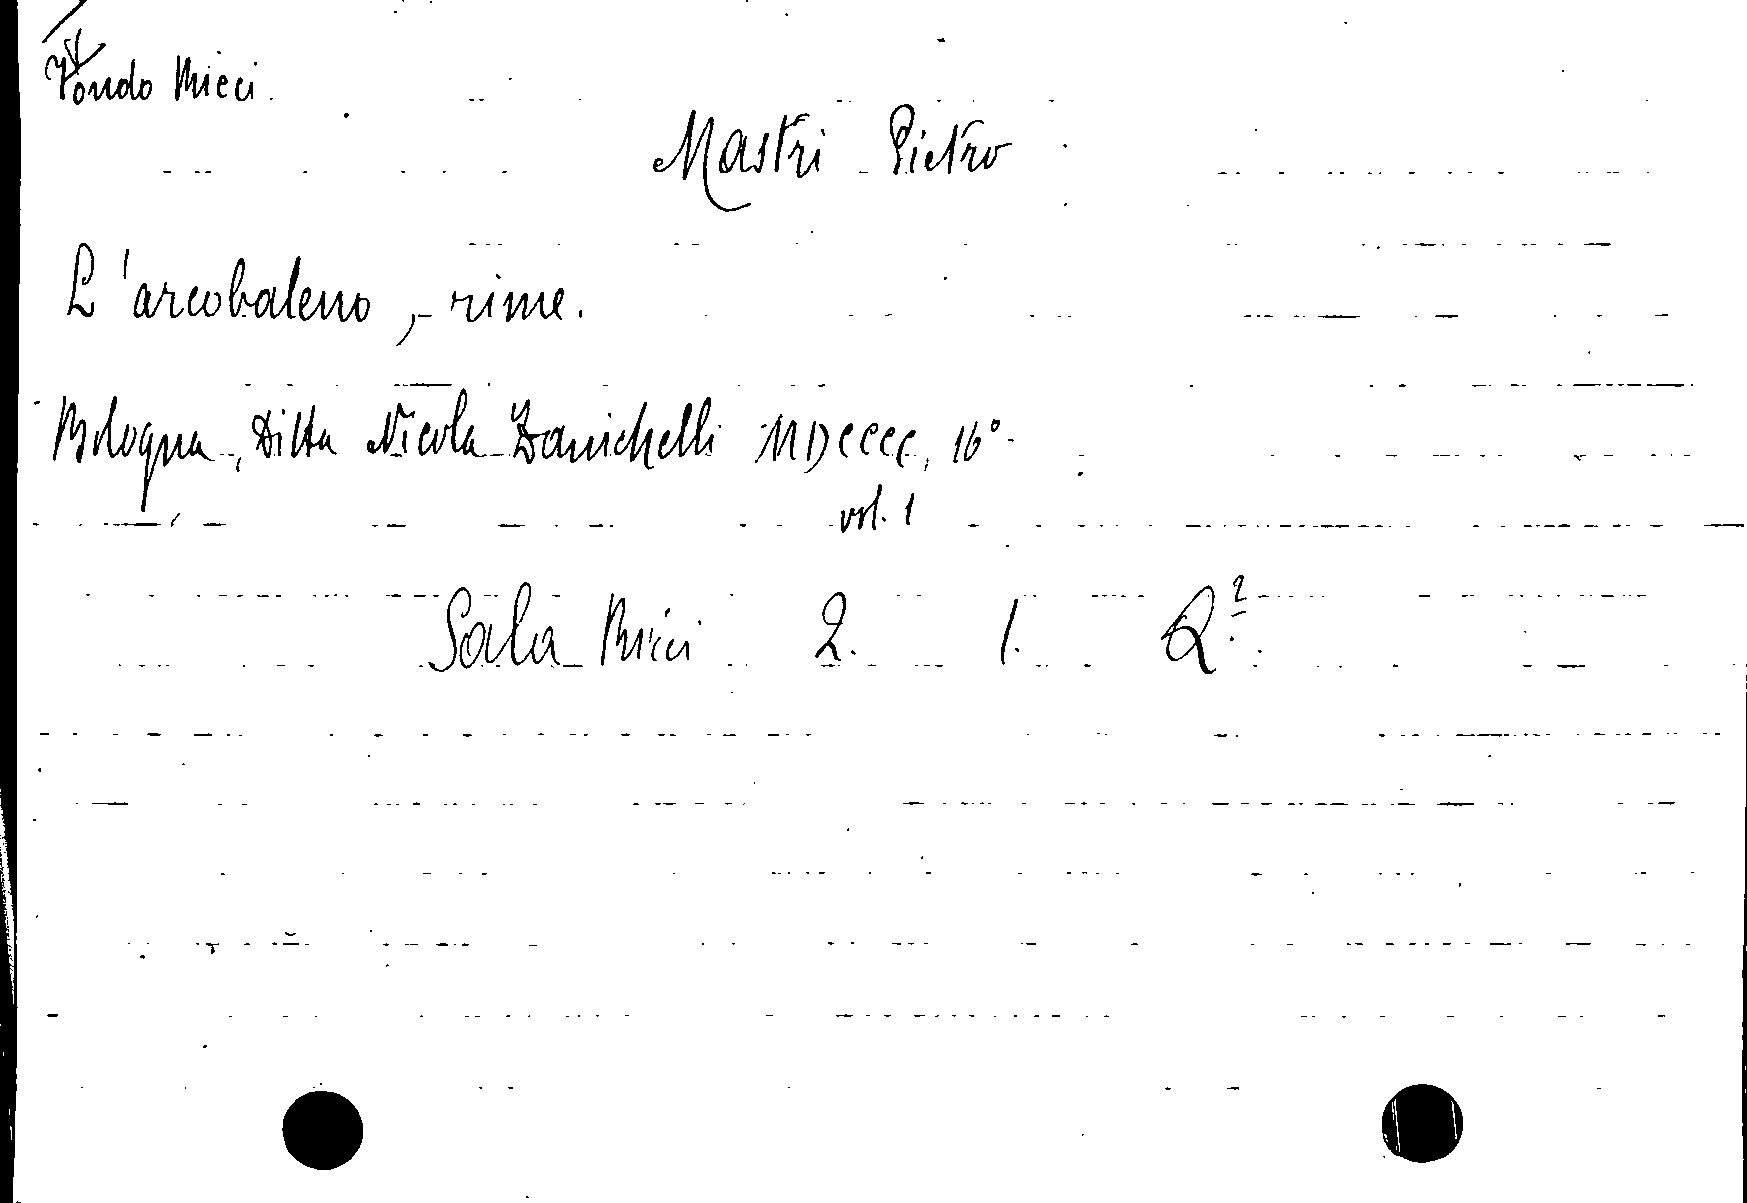 Fondo Ricci
Mastri Pietro
L'arcobaleno, - rime.
Bologna, Ditta Nicola Zanichelli MDCCCC, 16°
vol. 1
Sala Ricci 2. 1. Q²